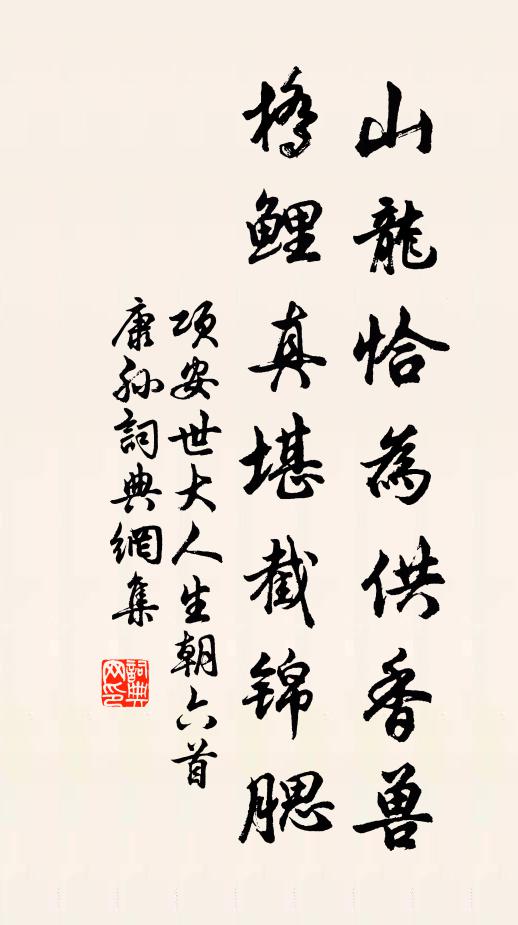 山龍恰為供香兽
橋鯉真堪截錦腮
項安世大人生朝六首
康孫詞典網集
詞典网印